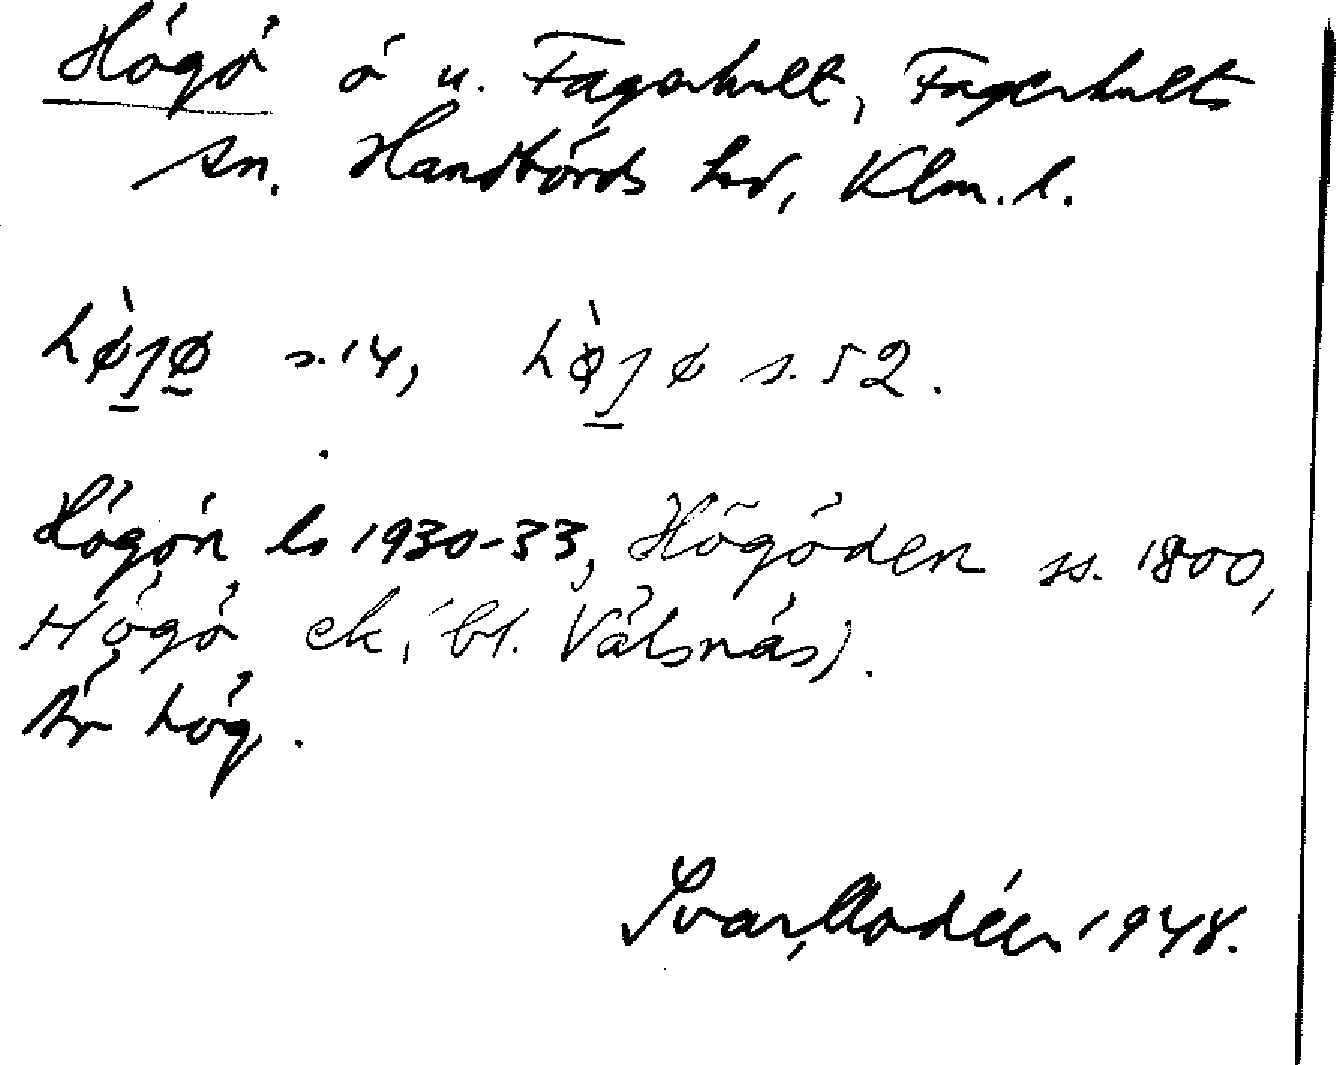 Högö ö u. Fagerhult, Fagerhults
sn. Handbörds hd, Klm. l.
hø̀jø s. 14, hø̀jø s. 52.
Högön ls 1930-33, Högöden ss. 1800,
Högö ek, (bl. Välsnäs).
Är hög.
Ivar Modéer 1948.